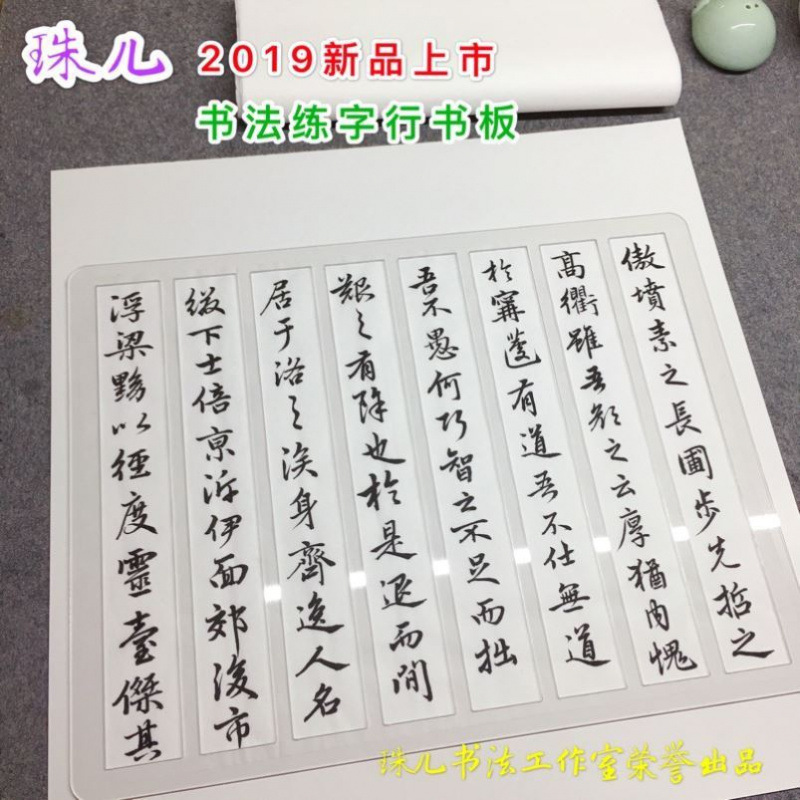 珠儿 2019新品上市
书法练字行书板
傲墳素之長圃步先哲之
高衢雖吾顏之云厚猶内愧
於甯蘧有道吾不仕無道
吾不愚何巧智之不足而拙
艱之有餘也於是退而間
居于洛之涘身齊逸人名
綴下士倍京泝伊面郊後市
浮梁黝以徑度靈臺傑其
珠儿书法工作室荣誉出品